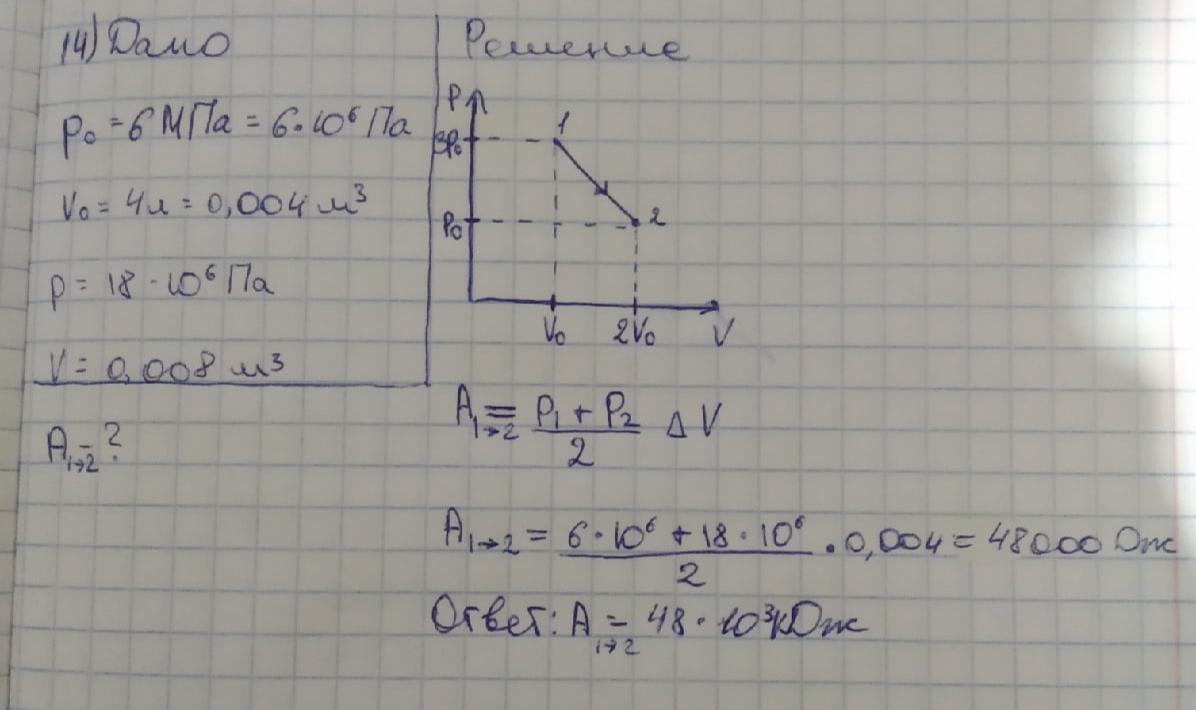 14) Дано
Решение
p₀ = 6 МПа = 6·10⁶ Па
V₀ = 4л = 0,004 м³
p = 18 · 10⁶ Па
V = 0,008 м³
A₁→₂ = ?
P
3p₀
1
P₀
2
V₀ 2V₀ V
A₁→₂ = (P₁ + P₂)/2 ΔV
A₁→₂ = (6·10⁶ + 18·10⁶)/2 · 0,004 = 48000 Дж
Ответ: A₁→₂ = 48·10³кДж